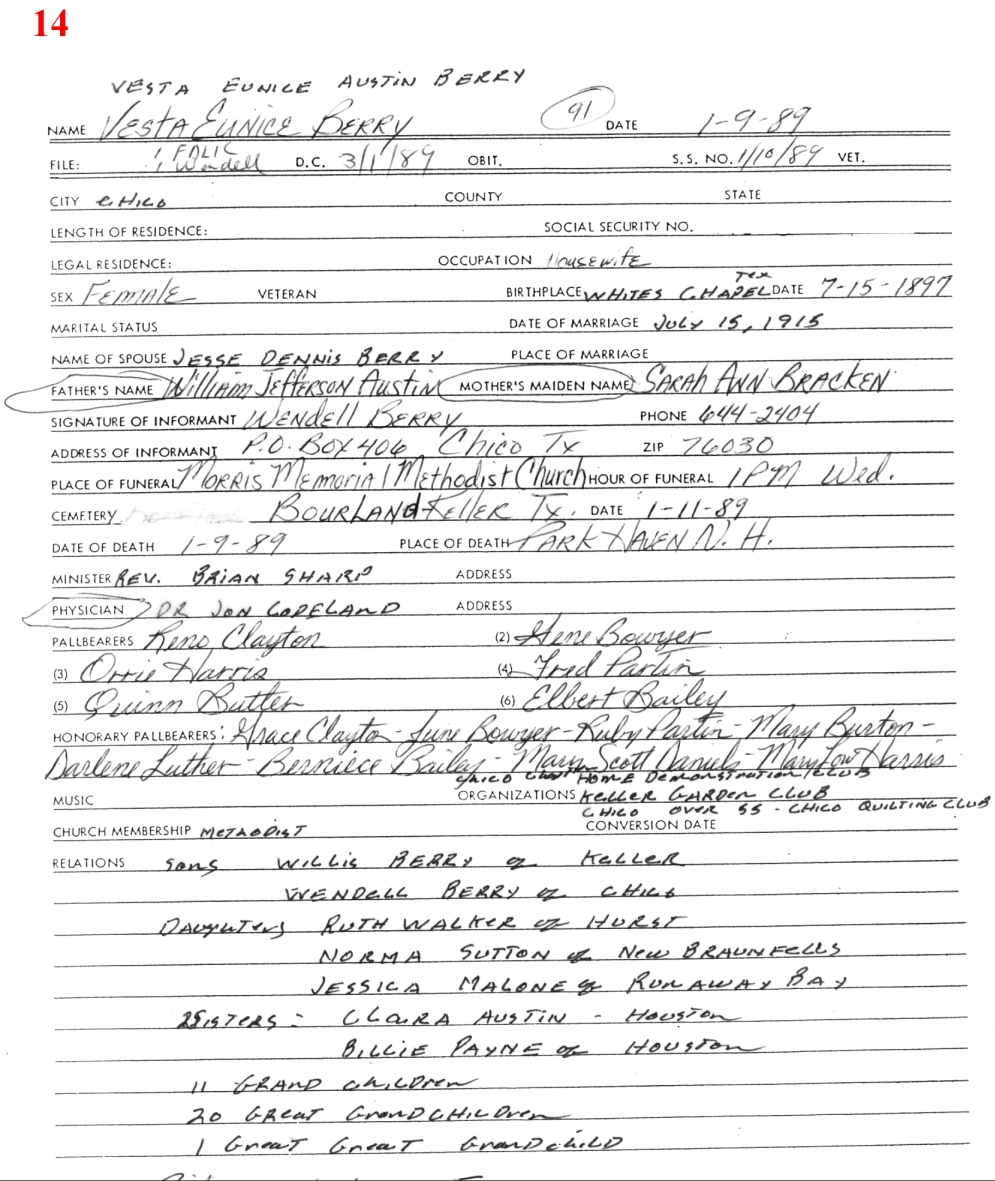 14
VESTA EUNICE AUSTIN BERRY
NAME VESTA EUNICE BERRY 91 DATE 1-9-89
FILE: Wendell D.C. 3/1/89 OBIT. S.S. NO. 1/10/89 VET.
CITY CHICO COUNTY STATE
LENGTH OF RESIDENCE: SOCIAL SECURITY NO.
LEGAL RESIDENCE: OCCUPATION Housewife
SEX FEMALE VETERAN BIRTHPLACE WHITES CHAPEL Tex DATE 7-15-1897
MARITAL STATUS DATE OF MARRIAGE JULY 15, 1915
NAME OF SPOUSE JESSE DENNIS BERRY PLACE OF MARRIAGE
FATHER'S NAME William Jefferson Austin MOTHER'S MAIDEN NAME SARAH ANN BRACKEN
SIGNATURE OF INFORMANT WENDELL BERRY PHONE 644-2404
ADDRESS OF INFORMANT P.O. BOX 406 Chico Tx ZIP 76030
PLACE OF FUNERAL MORRIS Memorial Methodist Church HOUR OF FUNERAL 1 PM Wed.
CEMETERY BOURLAND KELLER Tx. DATE 1-11-89
DATE OF DEATH 1-9-89 PLACE OF DEATH PARK HAVEN N. H.
MINISTER REV. BRIAN SHARP ADDRESS
PHYSICIAN DR JON COPELAND ADDRESS
PALLBEARERS Reno Clayton (2) Gene Bowyer
(3) Orrie Harris (4) Fred Partin
(5) Quinn Butler (6) Elbert Bailey
HONORARY PALLBEARERS: Grace Clayton - June Bowyer - Ruby Partin - Mary Burton -
Darlene Luther - Berniece Bailey - Mary Scott Daniels - Mary Low Harris
CHICO HOME DEMONSTRATION CLUB
MUSIC ORGANIZATIONS KELLER GARDEN CLUB
CHICO OVER 55 - CHICO QUILTING CLUB
CHURCH MEMBERSHIP METHODIST CONVERSION DATE
RELATIONS Sons WILLIS BERRY of KELLER
WENDELL BERRY of CHICO
DAUGHTERS RUTH WALKER of HURST
NORMA SUTTON of NEW BRAUNFELLS
JESSICA MALONE of RUNAWAY BAY
2 SISTERS - CLARA AUSTIN - HOUSTON
BILLIE PAYNE of HOUSTON
11 GRAND CHILDREN
20 GREAT GRANDCHILDREN
1 GREAT GREAT GRANDCHILD